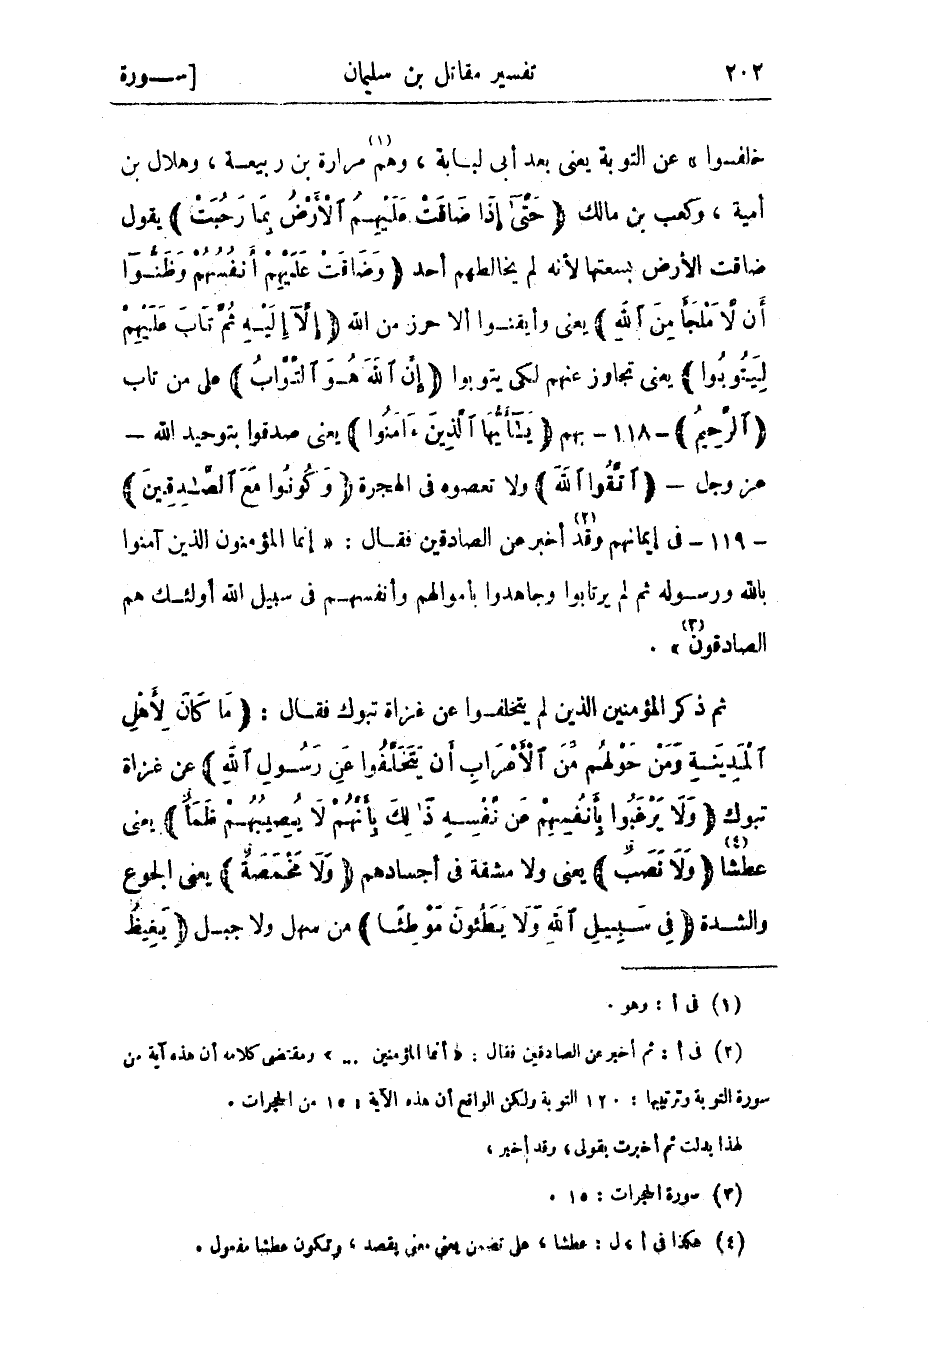 ٢٠٢ تفسير مقاتل بن سليمان [ســورة
خلفـوا » عن التوبة يعنى بعد أبى لبـابة ، وهم (١) مرارة بن ربيعـة ، وهلال بن
أمية ، وكعب بن مالك ﴿ حَتَّىٰ إِذَا ضَاقَتْ عَلَيْهِمُ ٱلْأَرْضُ بِمَا رَحُبَتْ ﴾ يقول
ضاقت الأرض بسعتها لأنه لم يخالطهم أحد ﴿ وَضَاقَتْ عَلَيْهِمْ أَنفُسُهُمْ وَظَنُّـوٓا
أَن لَّا مَلْجَأَ مِنَ ٱللَّهِ ﴾ يعنى وأيقنـوا ألا حرز من الله ﴿ إِلَّآ إِلَيْـهِ ثُمَّ تَابَ عَلَيْهِمْ
لِيَتُوبُوا ﴾ يعنى تجاوز عنهم لكى يتوبوا ﴿ إِنَّ ٱللَّهَ هُـوَ ٱلتَّوَّابُ ﴾ على من تاب
﴿ ٱلرَّحِيمُ ﴾ – ١١٨ – بهم ﴿ يَـٰٓأَيُّهَا ٱلَّذِينَ ءَامَنُوا ﴾ يعنى صدقوا بتوحيد الله –
عز وجل – ﴿ ٱتَّقُوا ٱللَّهَ ﴾ ولا تعصوه فى الهجرة ﴿ وَكُونُوا مَعَ ٱلصَّـٰدِقِينَ ﴾
– ١١٩ – فى إيمانهم وقد (٢) أخبر عن الصادقين فقـال : « إنما المؤمنون الذين آمنوا
بالله ورسـوله ثم لم يرتابوا وجاهدوا بأموالهم وأنفسهـم فى سبيل الله أولئـك هم
الصادقون (٣) » .
ثم ذكر المؤمنين الذين لم يتخلفـوا عن غزاة تبوك فقـال : ﴿ مَا كَانَ لِأَهْلِ
ٱلْمَدِينَـةِ وَمَنْ حَوْلَهُم مِّنَ ٱلْأَعْرَابِ أَن يَتَخَلَّفُوا عَن رَسُـولِ ٱللَّهِ ﴾ عن غزاة
تبوك ﴿ وَلَا يَرْغَبُوا بِأَنفُسِهِمْ عَن نَّفْسِـهِ ذَٰلِكَ بِأَنَّهُمْ لَا يُصِيبُهُـمْ ظَمَأٌ ﴾ يعنى
عطشا (٤) ﴿ وَلَا نَصَبٌ ﴾ يعنى ولا مشقة فى أجسادهم ﴿ وَلَا مَخْمَصَةٌ ﴾ يعنى الجوع
والشـدة ﴿ فِى سَـبِيـلِ ٱللَّهِ وَلَا يَطَئُونَ مَوْطِئًـا ﴾ من سهل ولا جبـل ﴿ يَغِيظُ
(١) فى أ : وهو .
(٢) فى أ : ثم أخبر عن الصادقين فقال : « أنما المؤمنين ... » ومقتضى كلامه أن هذه آية من
سورة التوبة وترتيبها : ١٢٠ التوبة ولكن الواقع أن هذه الآية : ١٥ من الحجرات .
لهذا بدلت ثم أخبرت بقولى ، وقد أخبر ،
(٣) سورة الحجرات : ١٥ .
(٤) هكذا فى أ ، ل : عطشا ، على تضمن يعنى معنى يقصد ، وتكون عطشا مفعول .